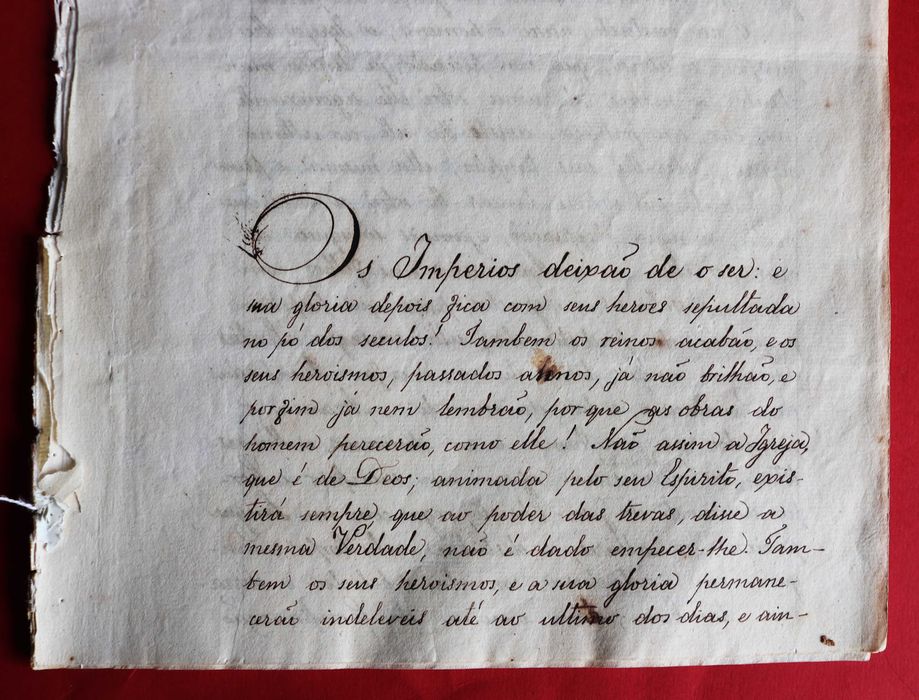 Os Imperios deixão de o ser: e
sua gloria depois fica com seus heroes sepultada
no pó dos seculos! Tambem os reinos acabão, e os
seus heroismos, passados annos, já não brilhão, e
por fim já nem lembrão, por que as obras do
homem perecerão, como elle! Não assim a Igreja,
que é de Deos; animada pelo seu Espirito, exis-
tirá sempre, que ao poder das trevas, disse a
mesma Verdade, não é dado empecer-lhe. Tam-
bem os seus heroismos, e a sua gloria permane-
cerão indeleveis até ao ultimo dos dias, e ain-